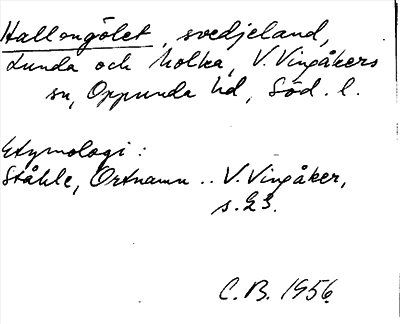 Hallongölet, svedjeland,
Lunda och Nolka, V. Vingåkers
sn, Oppunda hd, Söd. l.
Etymologi:
Ståhle, Ortnamn .. V. Vingåker,
s. 23.
C. B. 1956